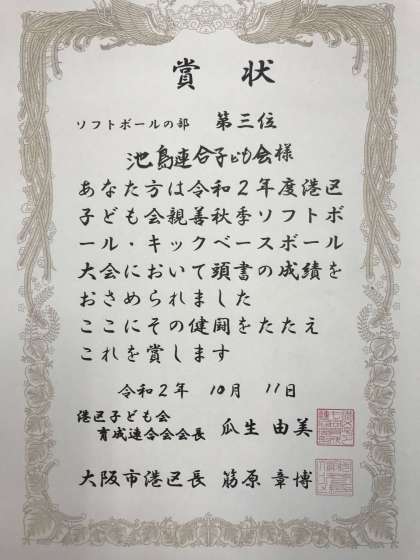 賞状
ソフトボールの部 第三位
池島連合子ども会様
あなた方は令和2年度港区
子ども会親善秋季ソフトボ
ール・キックベースボール
大会において頭書の成績を
おさめられました
ここにその健闘をたたえ
これを賞します
令和2年 10月 11日
港区子ども会
育成連合会会長 瓜生 由美
大阪市港区長 筋原 章博